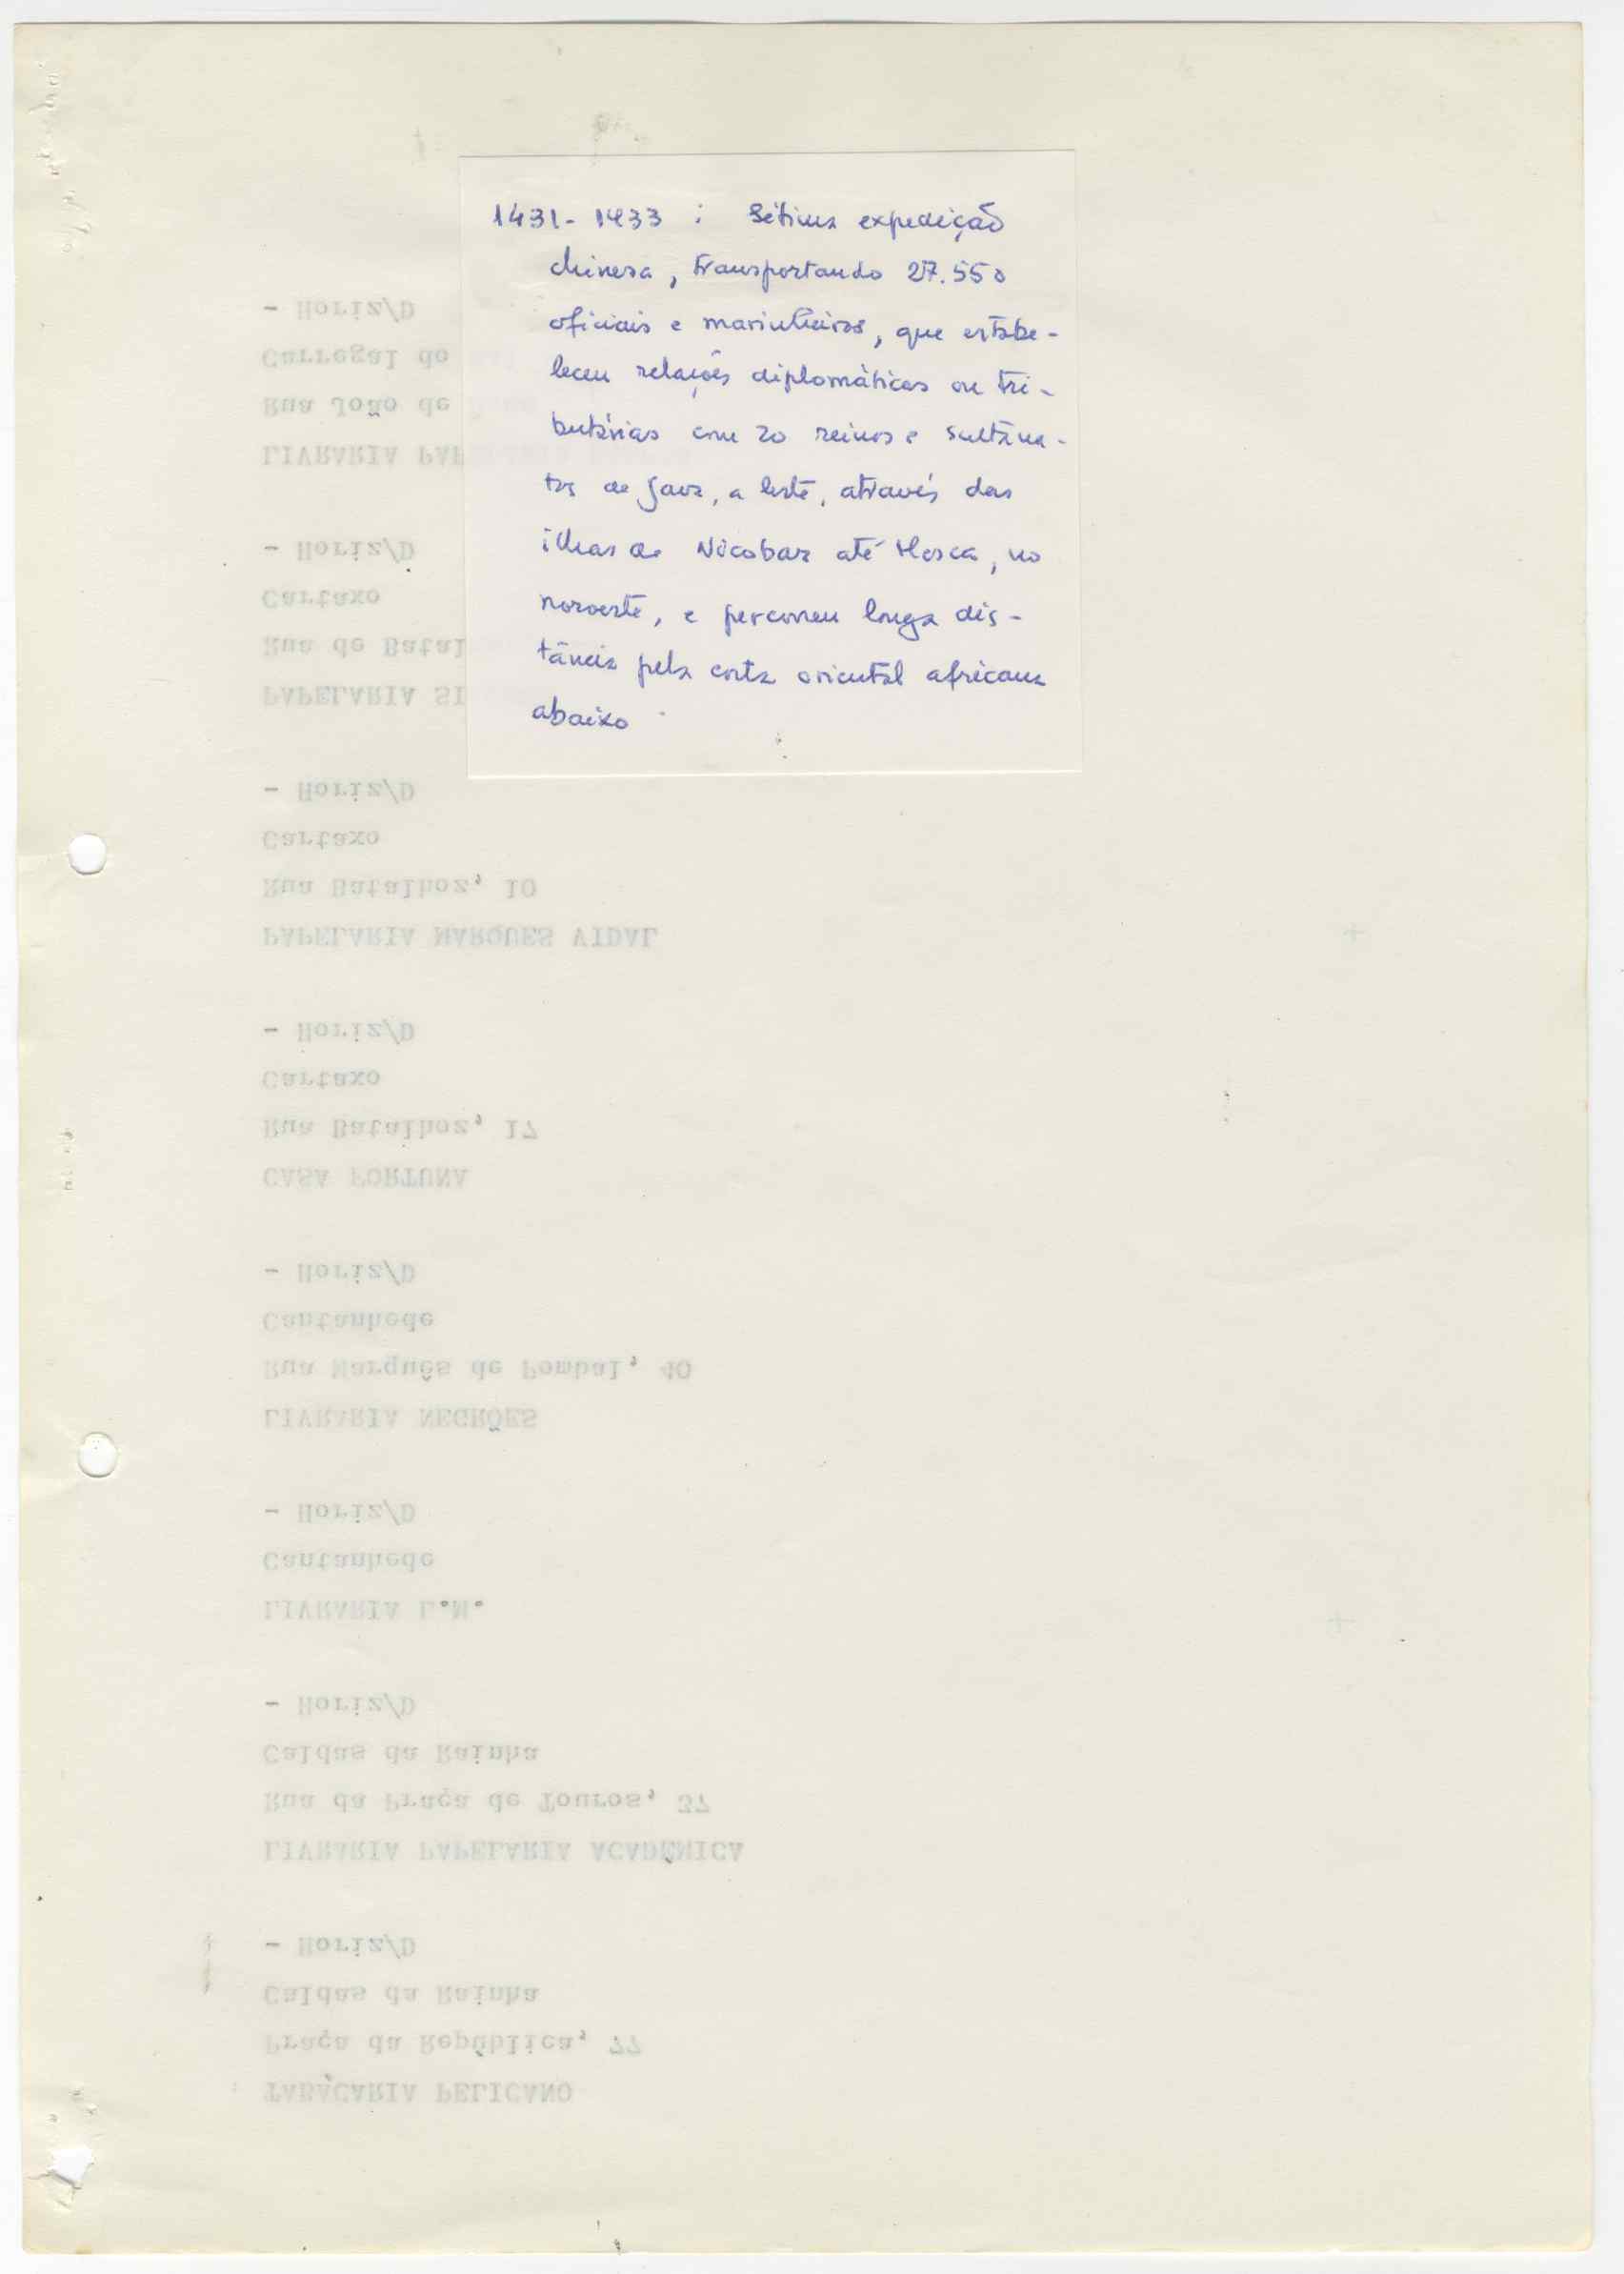 1431-1433 : Sétima expedição
chinesa, transportando 27.550
oficiais e marinheiros, que estabe-
leceu relações diplomáticas ou tri-
butárias com 20 reinos e sultana-
tos de Java, a leste, através das
ilhas de Nicobar até Meca, no
noroeste, e percorreu longa dis-
tância pela costa oriental africana
abaixo
TABACARIA PELICANO
Praça da República, 77
Caldas da Rainha
- Horiz/D
LIVRARIA PAPELARIA ACADÉMICA
Rua da Praça de Touros, 37
Caldas da Rainha
- Horiz/D
LIVRARIA L.M.
Cantanhede
- Horiz/D
LIVRARIA NEGRÕES
Rua Marquês de Pombal, 40
Cantanhede
- Horiz/D
CASA FORTUNA
Rua Batalhoz, 17
Cartaxo
- Horiz/D
PAPELARIA MARQUES VIDAL
Rua Batalhoz, 10
Cartaxo
- Horiz/D
PAPELARIA
Rua de
Cartaxo
- Horiz/D
LIVRARIA
Rua João de
Carregal do
- Horiz/D